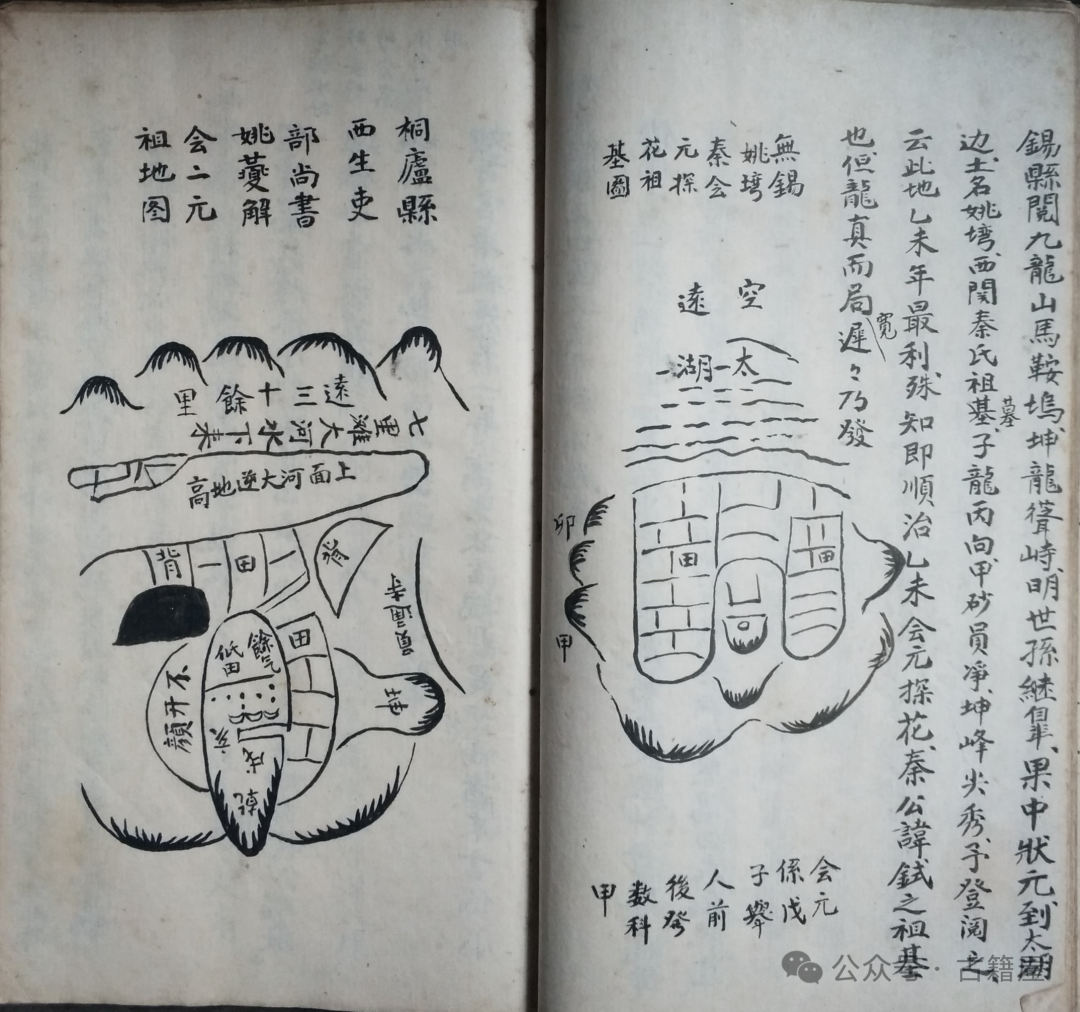 錫縣閱九龍山馬鞍塢坤龍聳峙明世孫繼皐果中狀元到太湖
边土名姚塆西関秦氏祖基子龍丙向甲砂員净坤峰尖秀予登阅之
墓
云此地乙未年最利殊知即順治乙未会元探花秦公諱鉽之祖基
也但龍真而局遲々乃發
寛
無錫
姚塆
秦会
元探
花祖
基圖
空遠
太湖
田
田
卯
甲
会元
係戊
子舉
人前
後發
数科
甲
桐廬縣
西生吏
部尚書
姚夔解
会二元
祖地图
遠三十餘里
七里灘大河水下来
上面河大逆地高
背
田
田
餘气
低田
不開顔
亥
戌
乾